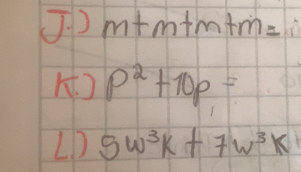 J.) m+m+m+m=
K.) p²+10p=
L.) 5w³k + 7w³k